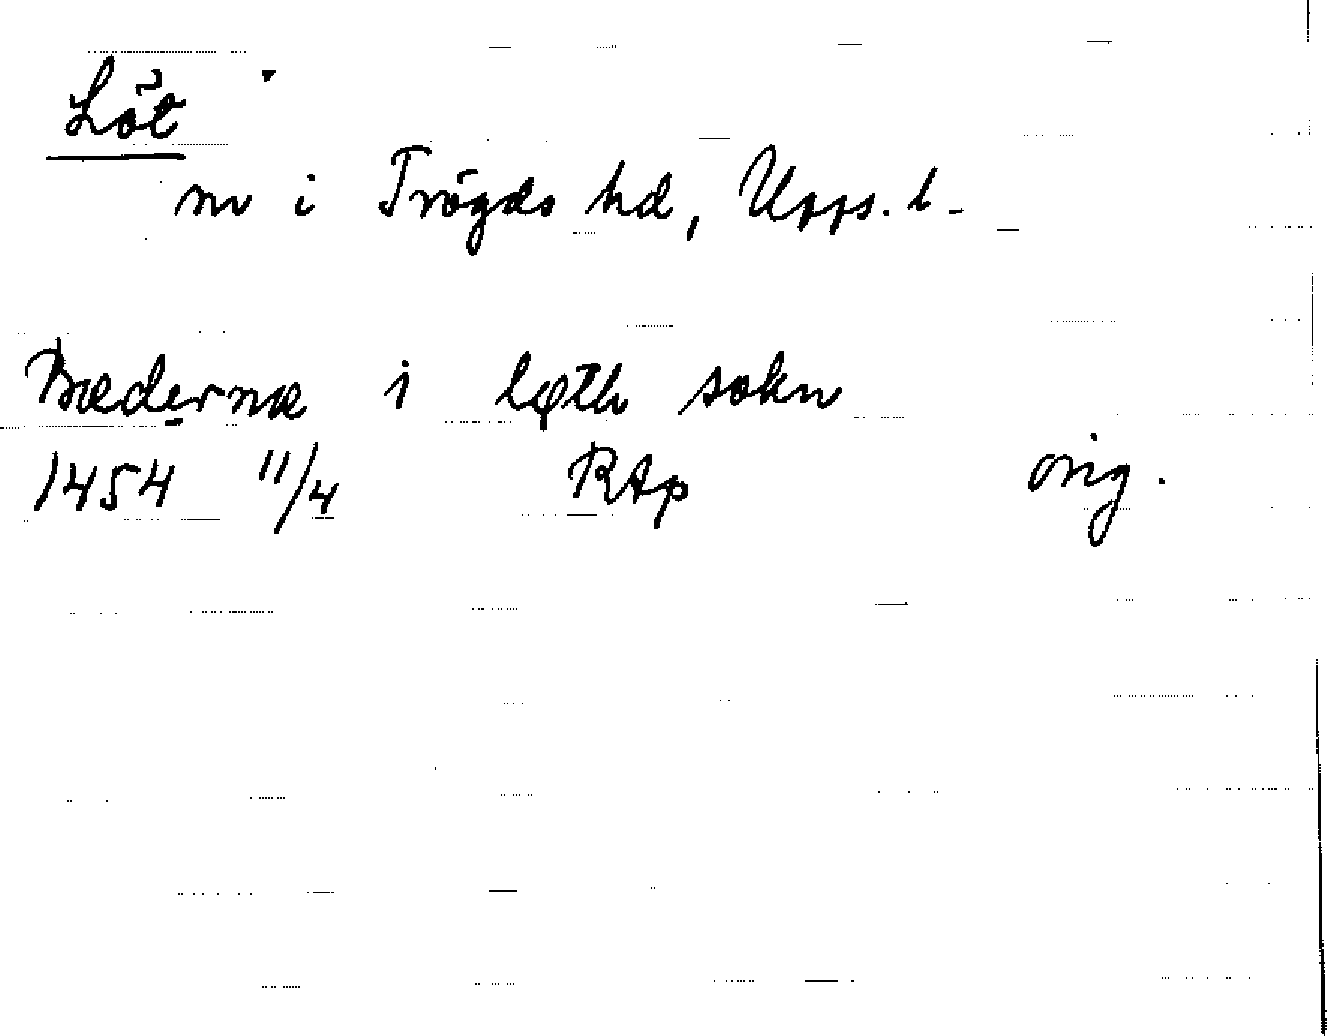 Löt
nv i Trögds hd, Upps. l.
Bædernæ i løth sokn
1454 11/4 RAp orig.